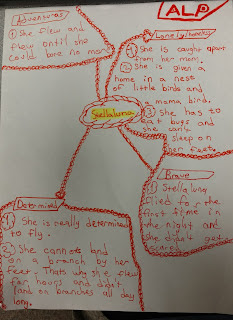 ALP
Adventures
① She flew and
flew until she
could bare no more
Lonely/homeless
① She is caught apart
from her mom.
② She is given a
home in a ness
of little birds and
a mama bird.
③ She has to
eat bugs and
she cant
sleep on
her feet.
Stellaluna
Brave
① Stellaluna
flied for the
first time in
the night and
she didn't get
scared.
Determined
① She is really determined
to fly.
② She cannot land
on a branch by her
feet. Thats why she flew
for hours and didn't
land on branches all day
long.